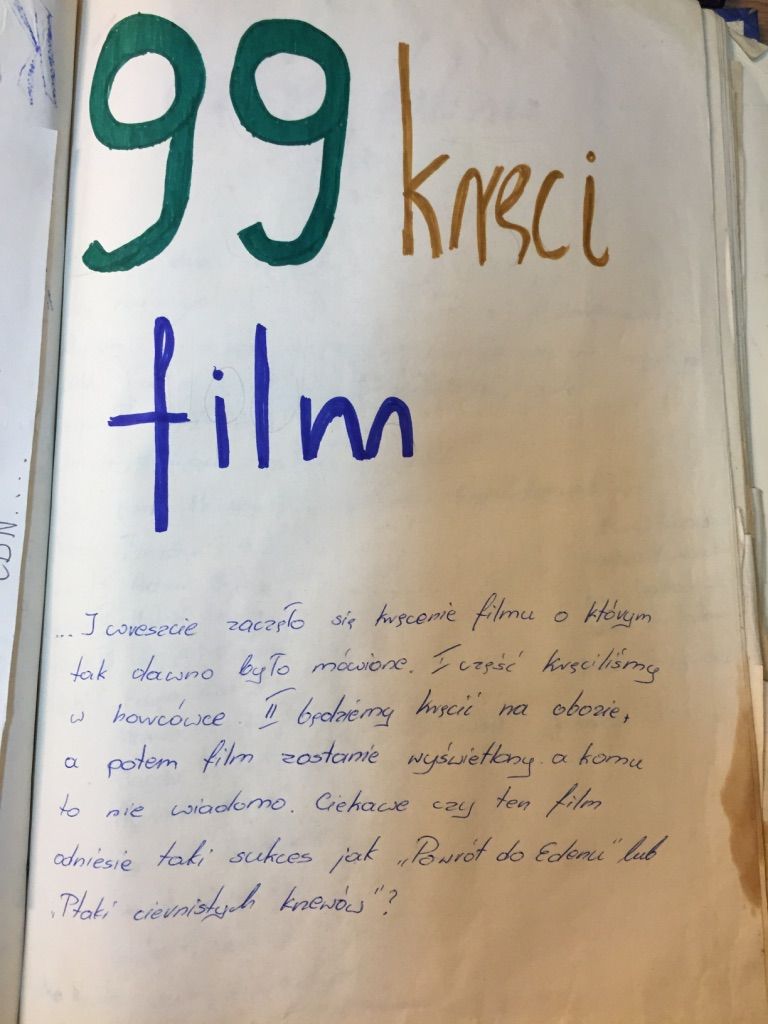 99 kręci
film
... I wreszcie zaczęło się kręcenie filmu o którym
tak dawno było mówione. I część kręciliśmy
w harcówce. II będziemy kręcić na obozie,
a potem film zostanie wyświetlony a komu
to nie wiadomo. Ciekawe czy ten film
odniesie taki sukces jak „Powrót do Edenu" lub
„Ptaki ciernistych krzewów"?
CDN....